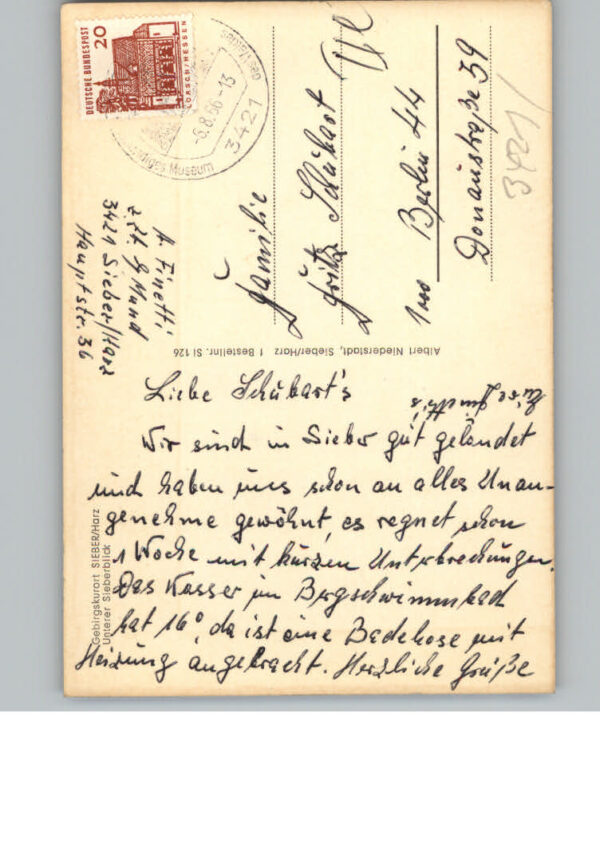 DEUTSCHE BUNDESPOST
20
LORSCH/HESSEN
-6.8.66-13
3421
Museum
A. Finetti
z. Zt. b/ Mund
3421 Sieber/Harz
Hauptstr. 36
Familie
Fritz Schubart
1000 Berlin 44
Donaustraße 39
3421/
Albert Niederstadt, Sieber/Harz 1 Bestellnr. SI 126
Gebirgskurort SIEBER/Harz
Unterer Sieberblick
Liebe Schubart's
Wir sind in Sieber gut gelandet
und haben uns schon an alles Unan-
genehme gewöhnt, es regnet schon
1 Woche mit kurzen Unterbrechungen.
Das Wasser im Bergschwimmbad
hat 16°, da ist eine Badehose mit
Heizung angebracht. Herzliche Grüße